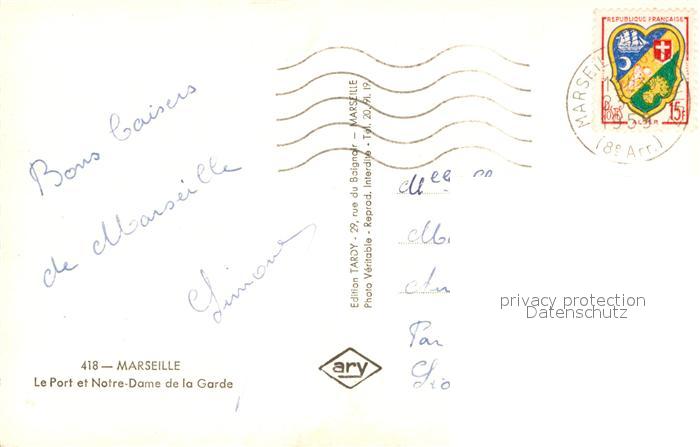 REPUBLIQUE FRANÇAISE
15F
POSTES
ALGER
MARSEIL
1959
(8e Arr.)
Bons baisers
de Marseille
Simone
Edition TARDY - 29, rue du Baignoir - MARSEILLE
Photo Véritable - Reprod. Interdite - Tel. 20.91.19
Mlle
M.
Par
privacy protection
Datenschutz
418 — MARSEILLE
Le Port et Notre-Dame de la Garde
ary